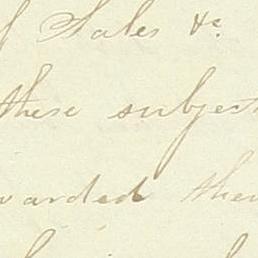 f Sales &c.
these subject
warded them